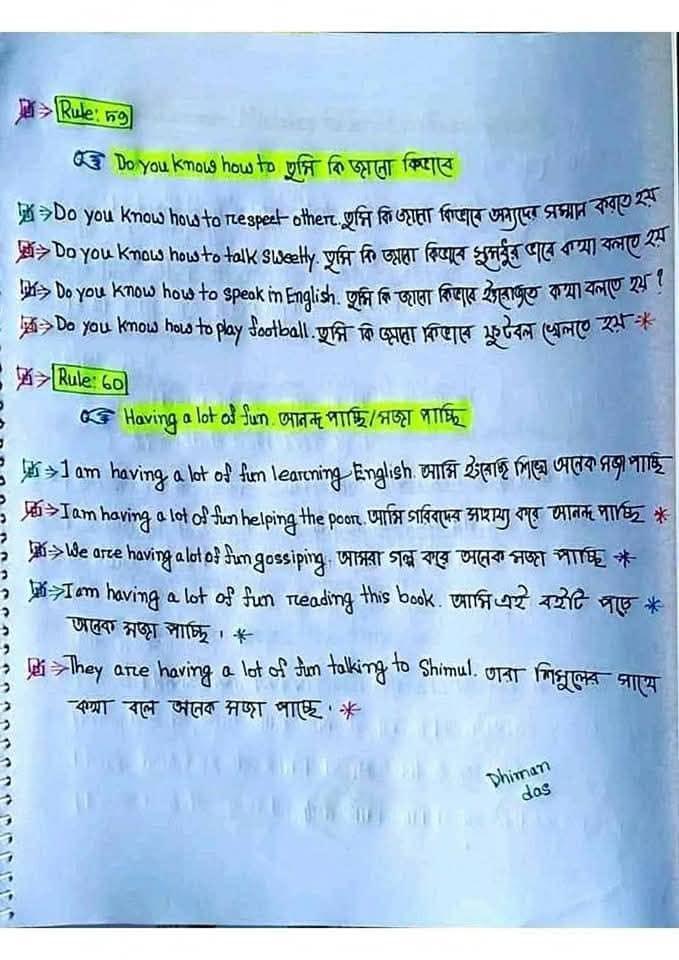 Rule: 59
Do you know how to তুমি কি জানো কিভাবে
Do you know how to respect other. তুমি কি জানো কিভাবে অন্যদের সম্মান করতে হয়
Do you know how to talk sweetly. তুমি কি জানো কিভাবে সুমধুর ভাবে কথা বলতে হয়
Do you know how to speak in English. তুমি কি জানো কিভাবে ইংরেজিতে কথা বলতে হয়?
Do you know how to play football. তুমি কি জানো কিভাবে ফুটবল খেলতে হয়
Rule: 60
Having a lot of fun. আনন্দ পাচ্ছি/মজা পাচ্ছি
I am having a lot of fun learning English. আমি ইংরেজি শিখে অনেক মজা পাচ্ছি
I am having a lot of fun helping the poor. আমি গরিবদের সাহায্য করে আনন্দ পাচ্ছি
We are having a lot of fun gossiping. আমরা গল্প করে অনেক মজা পাচ্ছি
I am having a lot of fun reading this book. আমি এই বইটি পড়ে
অনেক মজা পাচ্ছি।
They are having a lot of fun talking to Shimul. তারা শিমুলের সাথে
কথা বলে অনেক মজা পাচ্ছে।
Dhiman
das